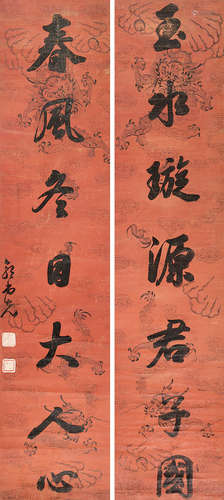 玉水璇源君子国
春风冬日大人心
郭尚先